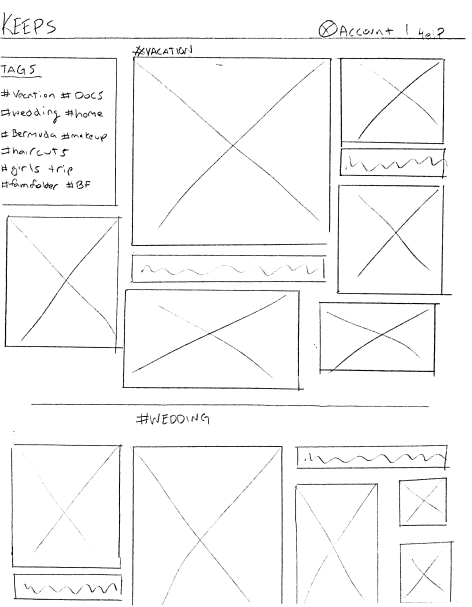 KEEPS
Account |
#VACATION
TAGS
#Vacation # DOCS
#wedding #home
#Bermuda #makeup
#haircuts
#girls trip
#famfolder #BF
#WEDDING